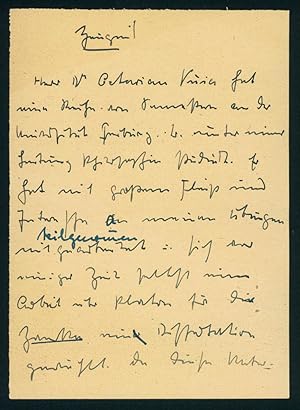 Zeugnis
Herr Dr Octavian Vuia hat
eine Reihe von Semestern an der
Universität Freiburg i. B. unter meiner
Leitung Philosophie studiert. Er
hat mit großem Fleiß und
Interesse an meinen Übungen
teilgenommen
mitgearbeitet u. sich vor
einiger Zeit selbst eine
Arbeit über Platon für die
Zwecke einer Dissertation
gewählt. Da diese Unter-